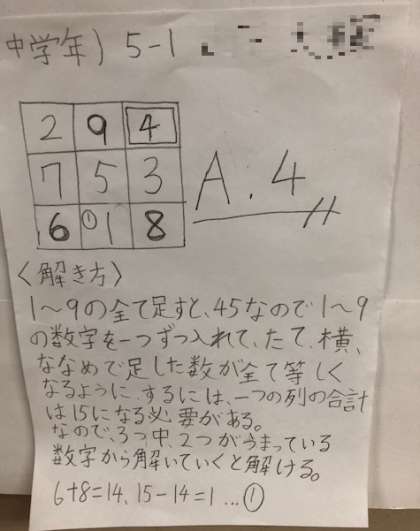 中学年) 5-1
2 9 4
7 5 3
6 ①1 8
A. 4
〈解き方〉
1〜9の全て足すと、45なので1〜9
の数字を一つずつ入れて、たて、横、
ななめで足した数が全て等しく
なるように、するには、一つの列の合計
は15になる必要がある。
なので、3つ中、2つがうまっている
数字から解いていくと解ける。
6+8=14、15-14=1…①